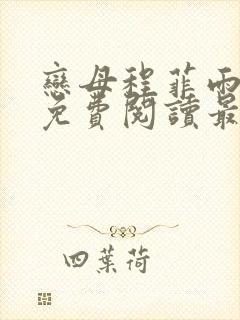 戀母程菲雨
免費閱讀最
四葉荷